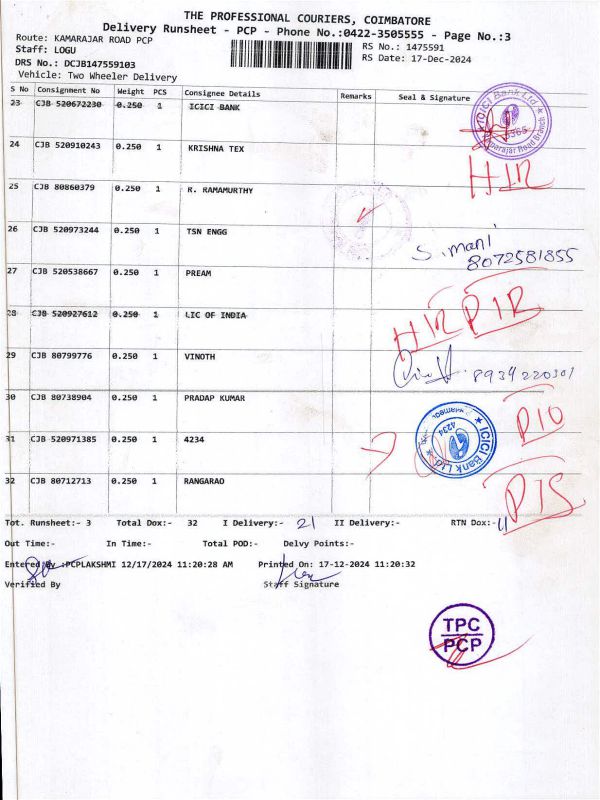 THE PROFESSIONAL COURIERS, COIMBATORE
Delivery Runsheet - PCP - Phone No.:0422-3505555 - Page No.:3
Route: KAMARAJAR ROAD PCP RS No.: 1475591
Staff: LOGU RS Date: 17-Dec-2024
DRS No.: DCJB147559103
Vehicle: Two Wheeler Delivery
S No Consignment No Weight PCS Consignee Details Remarks Seal & Signature
23 CJB 520672230 0.250 1 ICICI BANK
ICICI Bank Ltd.
24 CJB 520910243 0.250 1 KRISHNA TEX
25 CJB 80860379 0.250 1 R. RAMAMURTHY
26 CJB 520973244 0.250 1 TSN ENGG
S. mani
8072581855
27 CJB 520538667 0.250 1 PREAM
28 CJB 520927612 0.250 1 LIC OF INDIA
29 CJB 80799776 0.250 1 VINOTH
8934220301
30 CJB 80738904 0.250 1 PRADAP KUMAR
31 CJB 520971385 0.250 1 4234
ICICI Bank Ltd.
4234
32 CJB 80712713 0.250 1 RANGARAO
Tot. Runsheet:- 3 Total Dox:- 32 I Delivery:- 21 II Delivery:- RTN Dox:- 11
Out Time:- In Time:- Total POD:- Delvy Points:-
Entered By :PCPLAKSHMI 12/17/2024 11:20:28 AM Printed On: 17-12-2024 11:20:32
Verified By Staff Signature
TPC
PCP